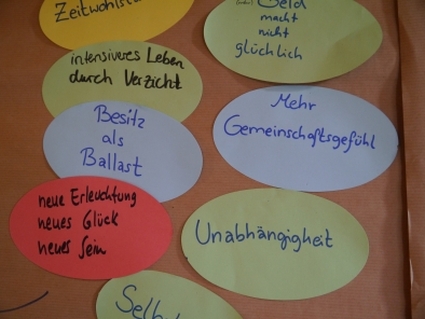 Zeitwohlsta
Geld
macht
nicht
glücklich
intensiveres Leben
durch Verzicht
Besitz
als
Ballast
Mehr
Gemeinschaftsgefühl
neue Erleuchtung
neues Glück
neues Sein
Unabhängigkeit
Selb